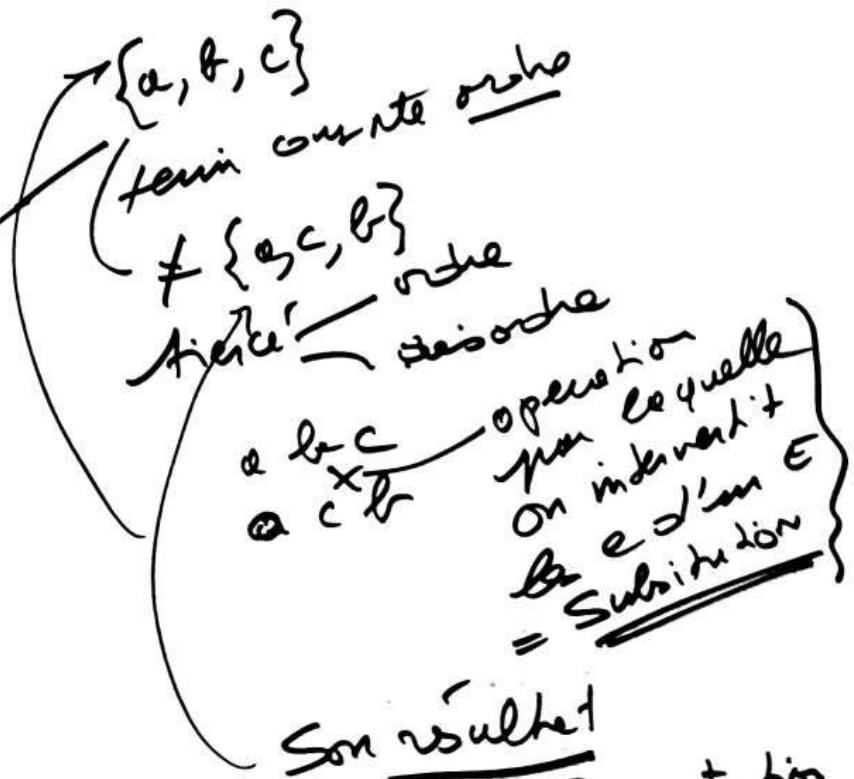 {a, b, c}
tenir compte ordre
≠ {a, c, b}
tiercé ordre
désordre
a b c
a c b
opération
par laquelle
on intervertit
les e d'un E
= Subsitution
Son résultat